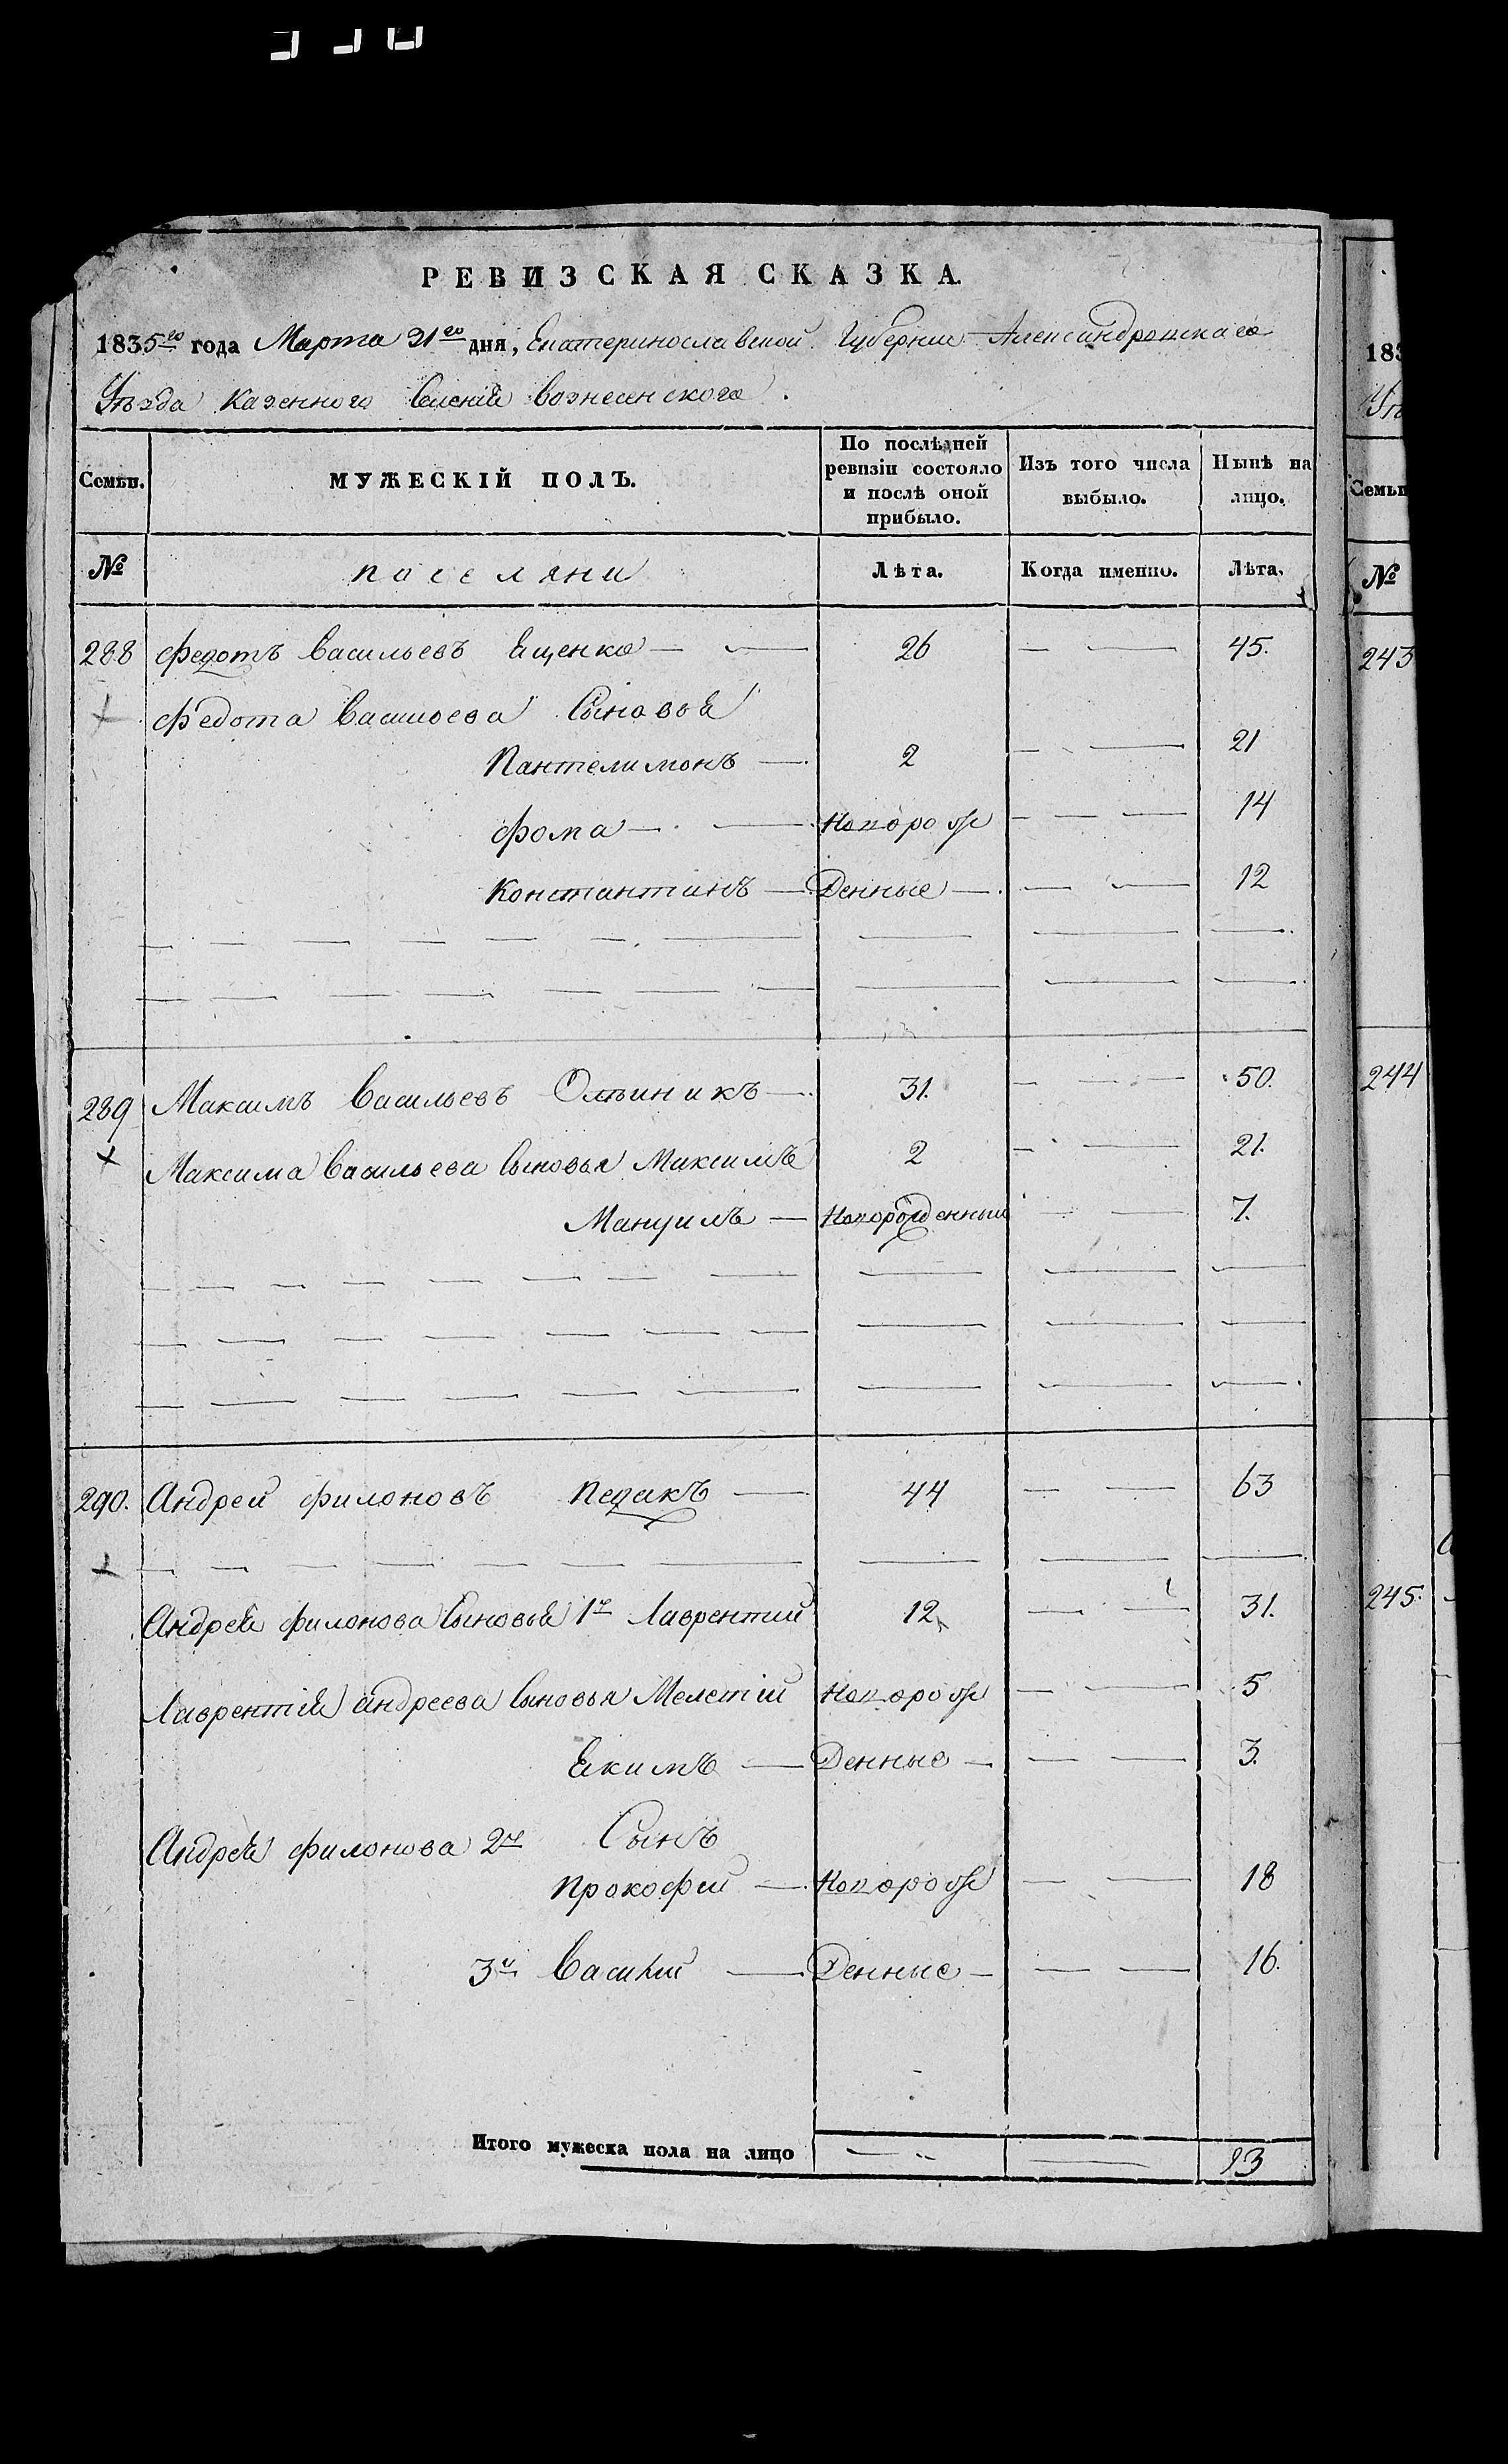 РЕВИЗСКАЯ СКАЗКА.
1835го года Марта 21го дня, Екатеринославской Губернии Александровскаго
Уѣзда Казенного Селенія Вознесенского.
Семьи. МУЖЕСКІЙ ПОЛЪ. По послѣдней ревизіи состояло и послѣ оной прибыло. Изъ того числа выбыло. Ныне на лицо.
№ поселяни Лѣта. Когда именно. Лѣта.
288 Федотъ Васильевъ Ещенко — — 26 — — 45.
Федота Васильева Сыновья
Пантелимонъ — 2 — — 21
Фома — — Новорож — — — 14
Константинъ — Денные — — — 12
289 Максимъ Васильевъ Олѣиникъ — 31. — — — 50.
Максима Васильева Сыновья Максимъ 2 — — 21.
Мануилъ — Новорожденныи — — 7.
290. Андреи Филоновъ Педакъ — 44 — — 63
Андрея Филонова Сыновья 1й Лаврентии 12 — — 31.
Лаврентія Андреева Сыновья Мелетіи Новорож — — 5
Екимъ — Денные — — — 3.
Андрея Филонова 2й Сынъ
Прокофии — Новорож — — 18
3й Василии — Денные — — — 16.
Итого мужеска пола на лицо — — 13
183
Уѣ
Семьи
№
243
244
245.